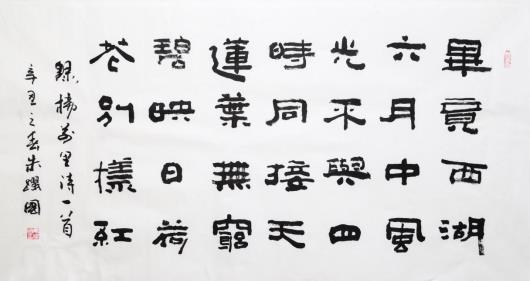 畢竟西湖
六月中風
光不與四
時同接天
蓮葉無窮
碧映日荷
花别樣紅
録楊萬里詩一首
辛丑之春朱躍國